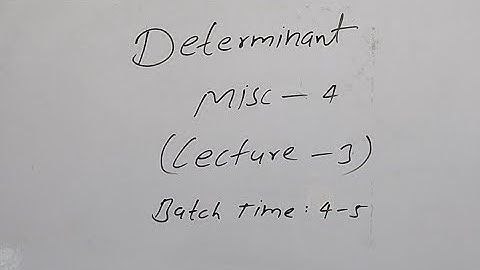 Determinant
Misc - 4
(Lecture - 3)
Batch Time: 4-5